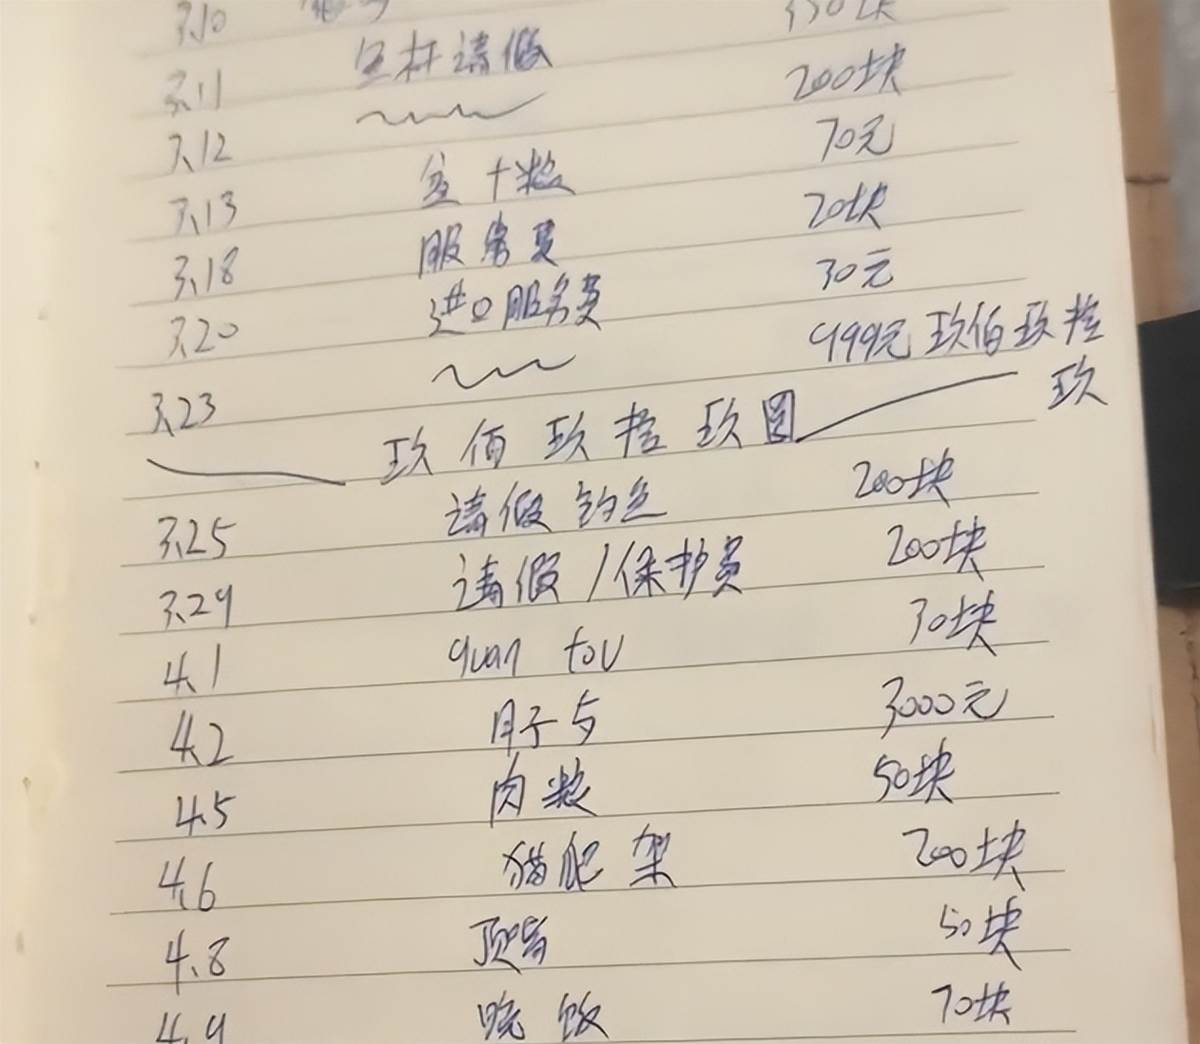 3.10 350块
3.11 鱼杆请假 200块
3.12 70元
3.13 鱼十粮 20块
3.18 服务员 30元
3.20 进口服务员 999元玖佰玖拾
3.23 玖
玖佰玖拾玖圆
3.25 请假钓鱼 200块
3.29 请假/保护员 200块
4.1 guan tou 30块
4.2 月子与 3000元
4.5 肉粮 50块
4.6 猫爬架 200块
4.8 顶嘴 50块
4.9 晚饭 70块